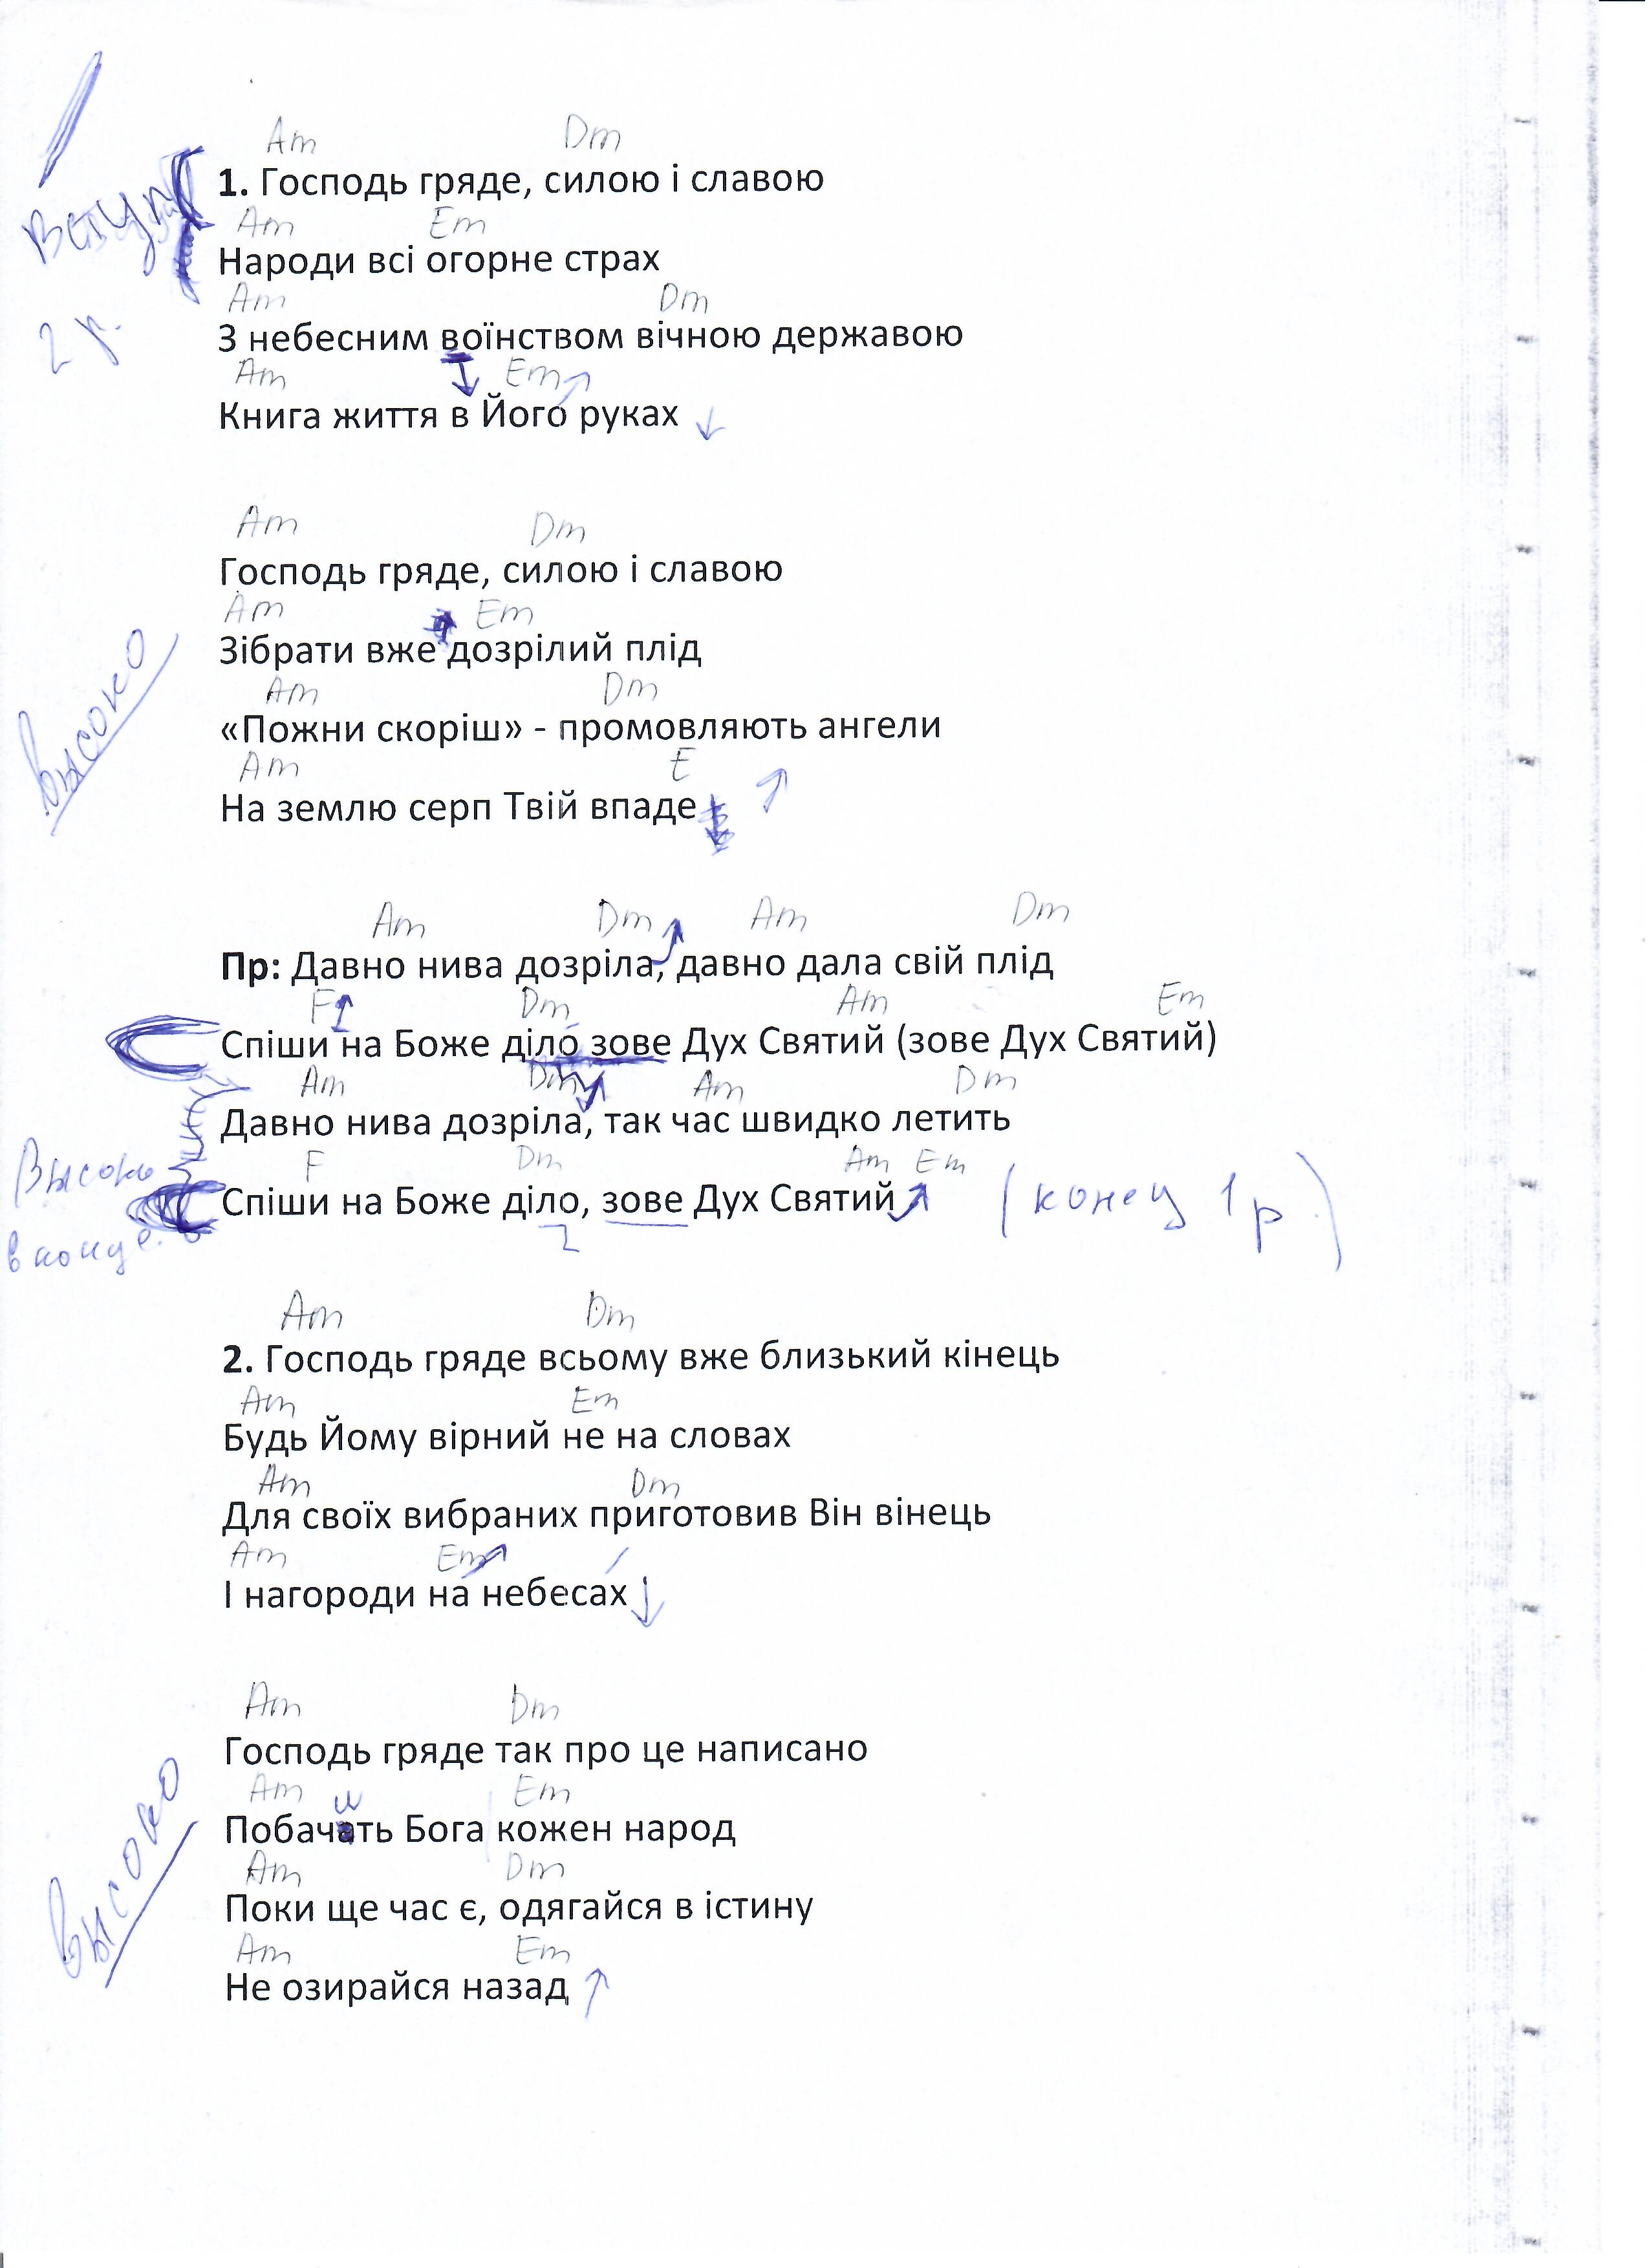 Am Dm
1. Господь гряде, силою і славою
Вступ
Am Em
Народи всі огорне страх
2 р.
Am Dm
З небесним воїнством вічною державою
Am Em
Книга життя в Його руках
Am Dm
Господь гряде, силою і славою
Am Em
Зібрати вже дозрілий плід
высоко
Am Dm
«Пожни скоріш» - промовляють ангели
Am E
На землю серп Твій впаде
Am Dm Am Dm
Пр: Давно нива дозріла, давно дала свій плід
F Dm Am Em
Спіши на Боже діло зове Дух Святий (зове Дух Святий)
Am Dm Am Dm
Давно нива дозріла, так час швидко летить
Высоко в конце.
F Dm Am Em
Спіши на Боже діло, зове Дух Святий (конец 1 р)
Am Dm
2. Господь гряде всьому вже близький кінець
Am Em
Будь Йому вірний не на словах
Am Dm
Для своїх вибраних приготовив Він вінець
Am Em
І нагороди на небесах
Am Dm
Господь гряде так про це написано
Am и Em
Побачать Бога кожен народ
высоко
Am Dm
Поки ще час є, одягайся в істину
Am Em
Не озирайся назад